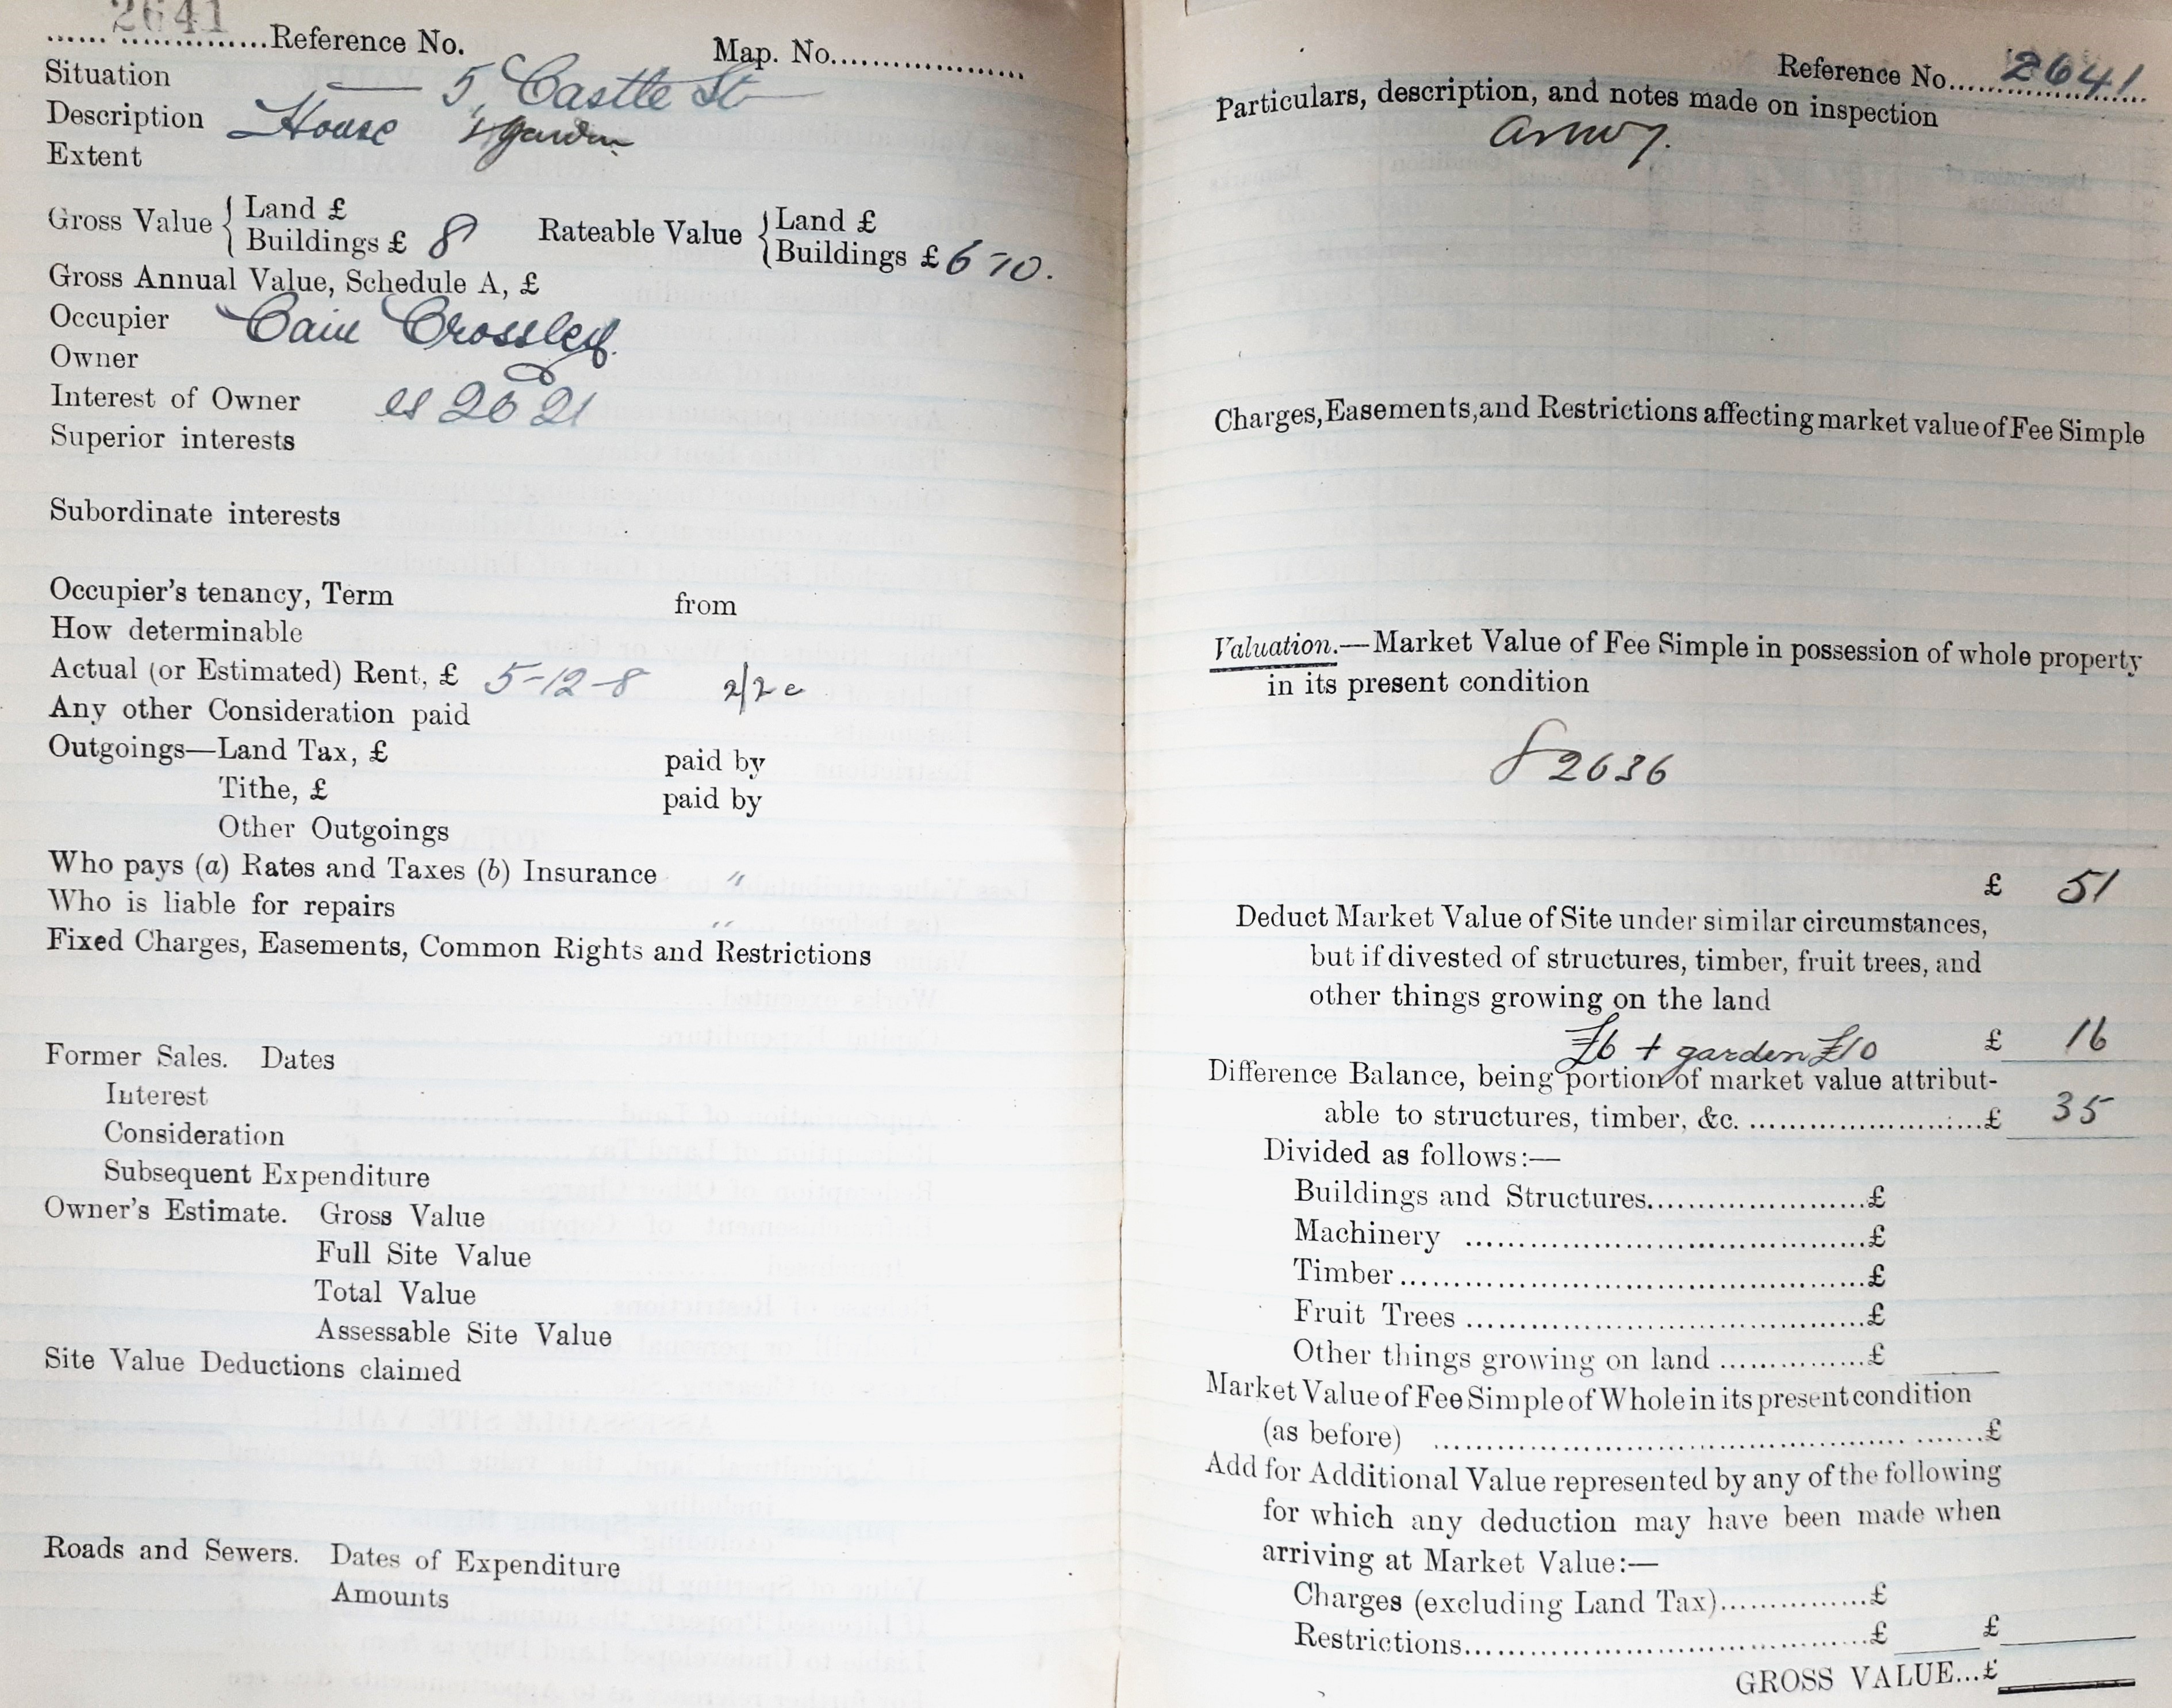 2641
...... ...............Reference No.
Map. No.....................
Situation 5, Castle St
Description House & garden
Extent
Gross Value { Land £
Buildings £ 8
Rateable Value { Land £
Buildings £ 6-10.
Gross Annual Value, Schedule A, £
Occupier Crossley
Owner
Interest of Owner as 2621
Superior interests
Subordinate interests
Occupier's tenancy, Term from
How determinable
Actual (or Estimated) Rent, £ 5-12-8 2/2
Any other Consideration paid
Outgoings—Land Tax, £ paid by
Tithe, £ paid by
Other Outgoings
Who pays (a) Rates and Taxes (b) Insurance "
Who is liable for repairs "
Fixed Charges, Easements, Common Rights and Restrictions
Former Sales. Dates
Interest
Consideration
Subsequent Expenditure
Owner's Estimate. Gross Value
Full Site Value
Total Value
Assessable Site Value
Site Value Deductions claimed
Roads and Sewers. Dates of Expenditure
Amounts
Reference No....2641
Particulars, description, and notes made on inspection
Charges, Easements, and Restrictions affecting market value of Fee Simple
Valuation.—Market Value of Fee Simple in possession of whole property
in its present condition
2636
£ 51
Deduct Market Value of Site under similar circumstances,
but if divested of structures, timber, fruit trees, and
other things growing on the land
£6 + garden £10 £ 16
Difference Balance, being portion of market value attribut-
able to structures, timber, &c. .........................£ 35
Divided as follows:—
Buildings and Structures........................£
Machinery ..........................................£
Timber.................................................£
Fruit Trees ..........................................£
Other things growing on land ................£
Market Value of Fee Simple of Whole in its present condition
(as before) ..........................................................£
Add for Additional Value represented by any of the following
for which any deduction may have been made when
arriving at Market Value:—
Charges (excluding Land Tax)................£
Restrictions............................................£ £
GROSS VALUE...£